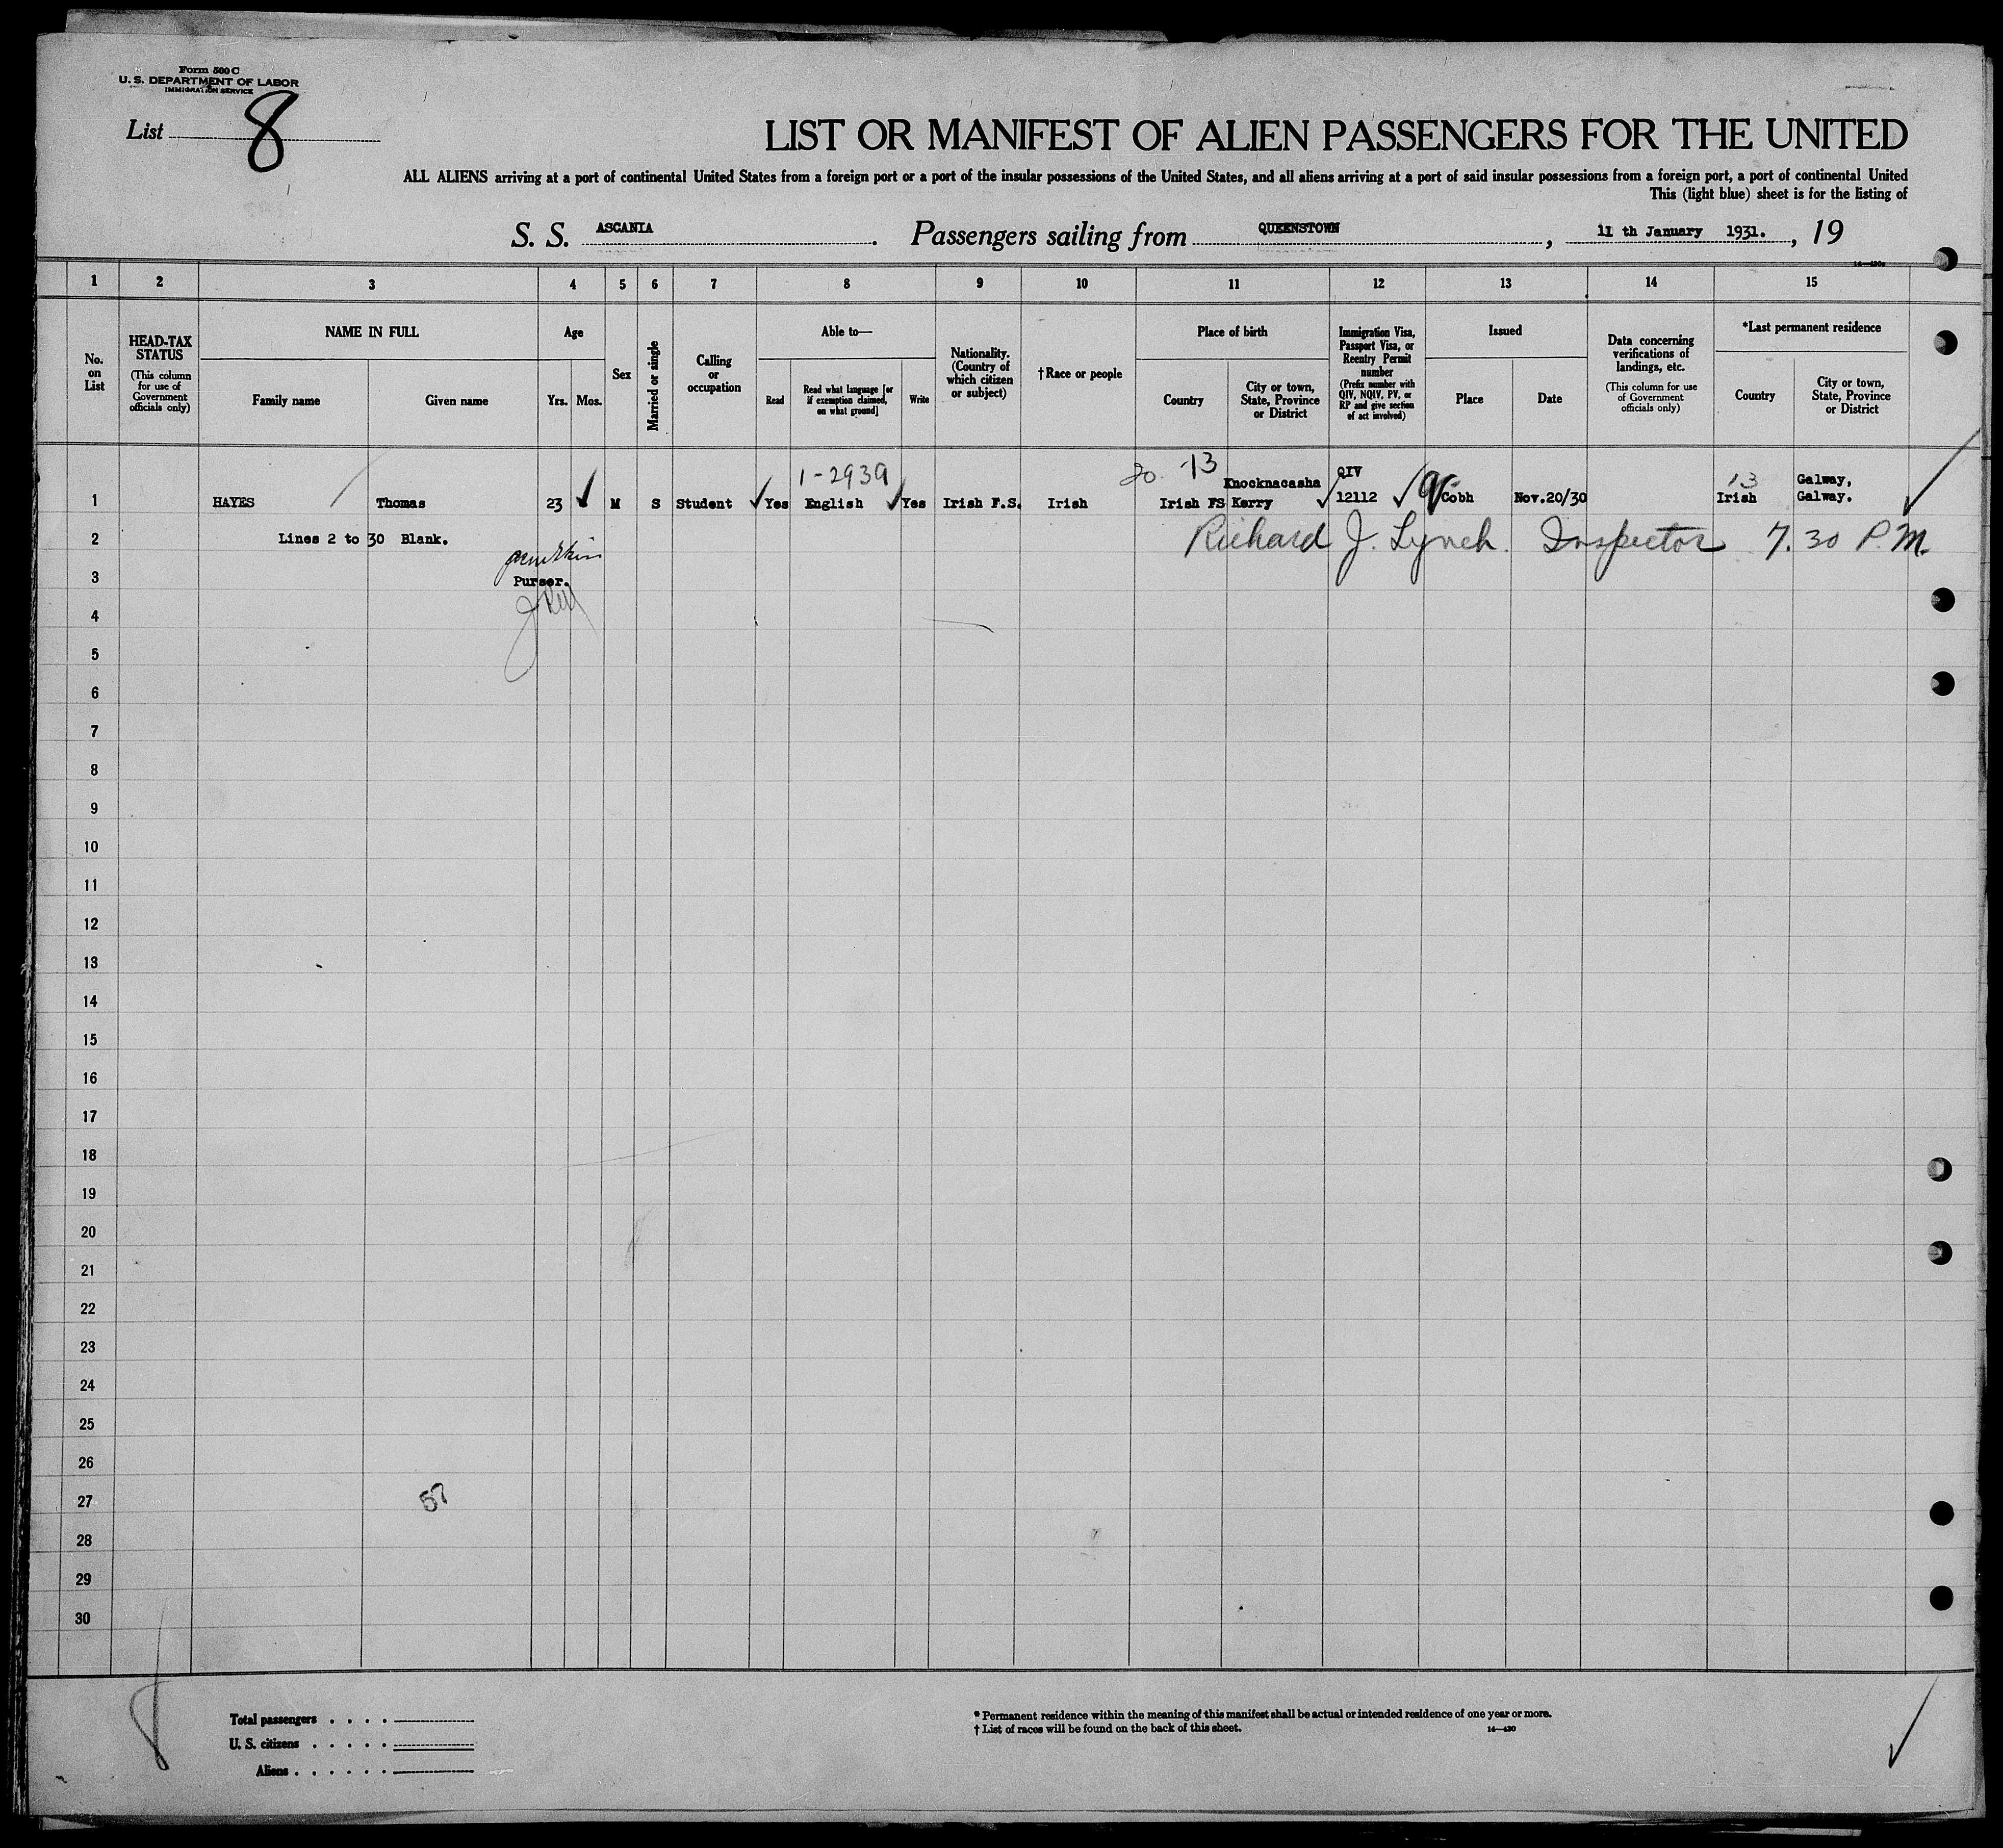 Form 500 C
U. S. DEPARTMENT OF LABOR
IMMIGRATION SERVICE
List 8
LIST OR MANIFEST OF ALIEN PASSENGERS FOR THE UNITED
ALL ALIENS arriving at a port of continental United States from a foreign port or a port of the insular possessions of the United States, and all aliens arriving at a port of said insular possessions from a foreign port, a port of continental United
This (light blue) sheet is for the listing of
S. S. ASCANIA. Passengers sailing from QUEENSTOWN, 11 th January 1931., 19
1 2 3 4 5 6 7 8 9 10 11 12 13 14 15
No. on List
HEAD-TAX STATUS
(This column for use of Government officials only)
NAME IN FULL
Family name Given name
Age
Yrs. Mos.
Sex
Married or single
Calling or occupation
Able to—
Read
Read what language [or if exemption claimed, on what ground]
Write
Nationality. (Country of which citizen or subject)
†Race or people
Place of birth
Country
City or town, State, Province or District
Immigration Visa, Passport Visa, or Reentry Permit number
(Prefix number with QIV, NQIV, PV, or RP and give section of act involved)
Issued
Place Date
Data concerning verifications of landings, etc.
(This column for use of Government officials only)
*Last permanent residence
Country
City or town, State, Province or District
1-2939 20 13 QIV 13 Galway,
Knocknacasha
1 HAYES Thomas 23 M S Student Yes English Yes Irish F.S. Irish Irish FS Kerry 12112 Cobh Nov.20/30 Irish Galway.
2 Lines 2 to 30 Blank. Richard J. Lynch. Inspector 7.30 P.M.
3 Purser.
4
5
6
7
8
9
10
11
12
13
14
15
16
17
18
19
20
21
22
23
24
25
26
27 57
28
29
30
Total passengers . . . .
U. S. citizens . . . . .
Aliens . . . . . .
* Permanent residence within the meaning of this manifest shall be actual or intended residence of one year or more.
† List of races will be found on the back of this sheet. 14—430